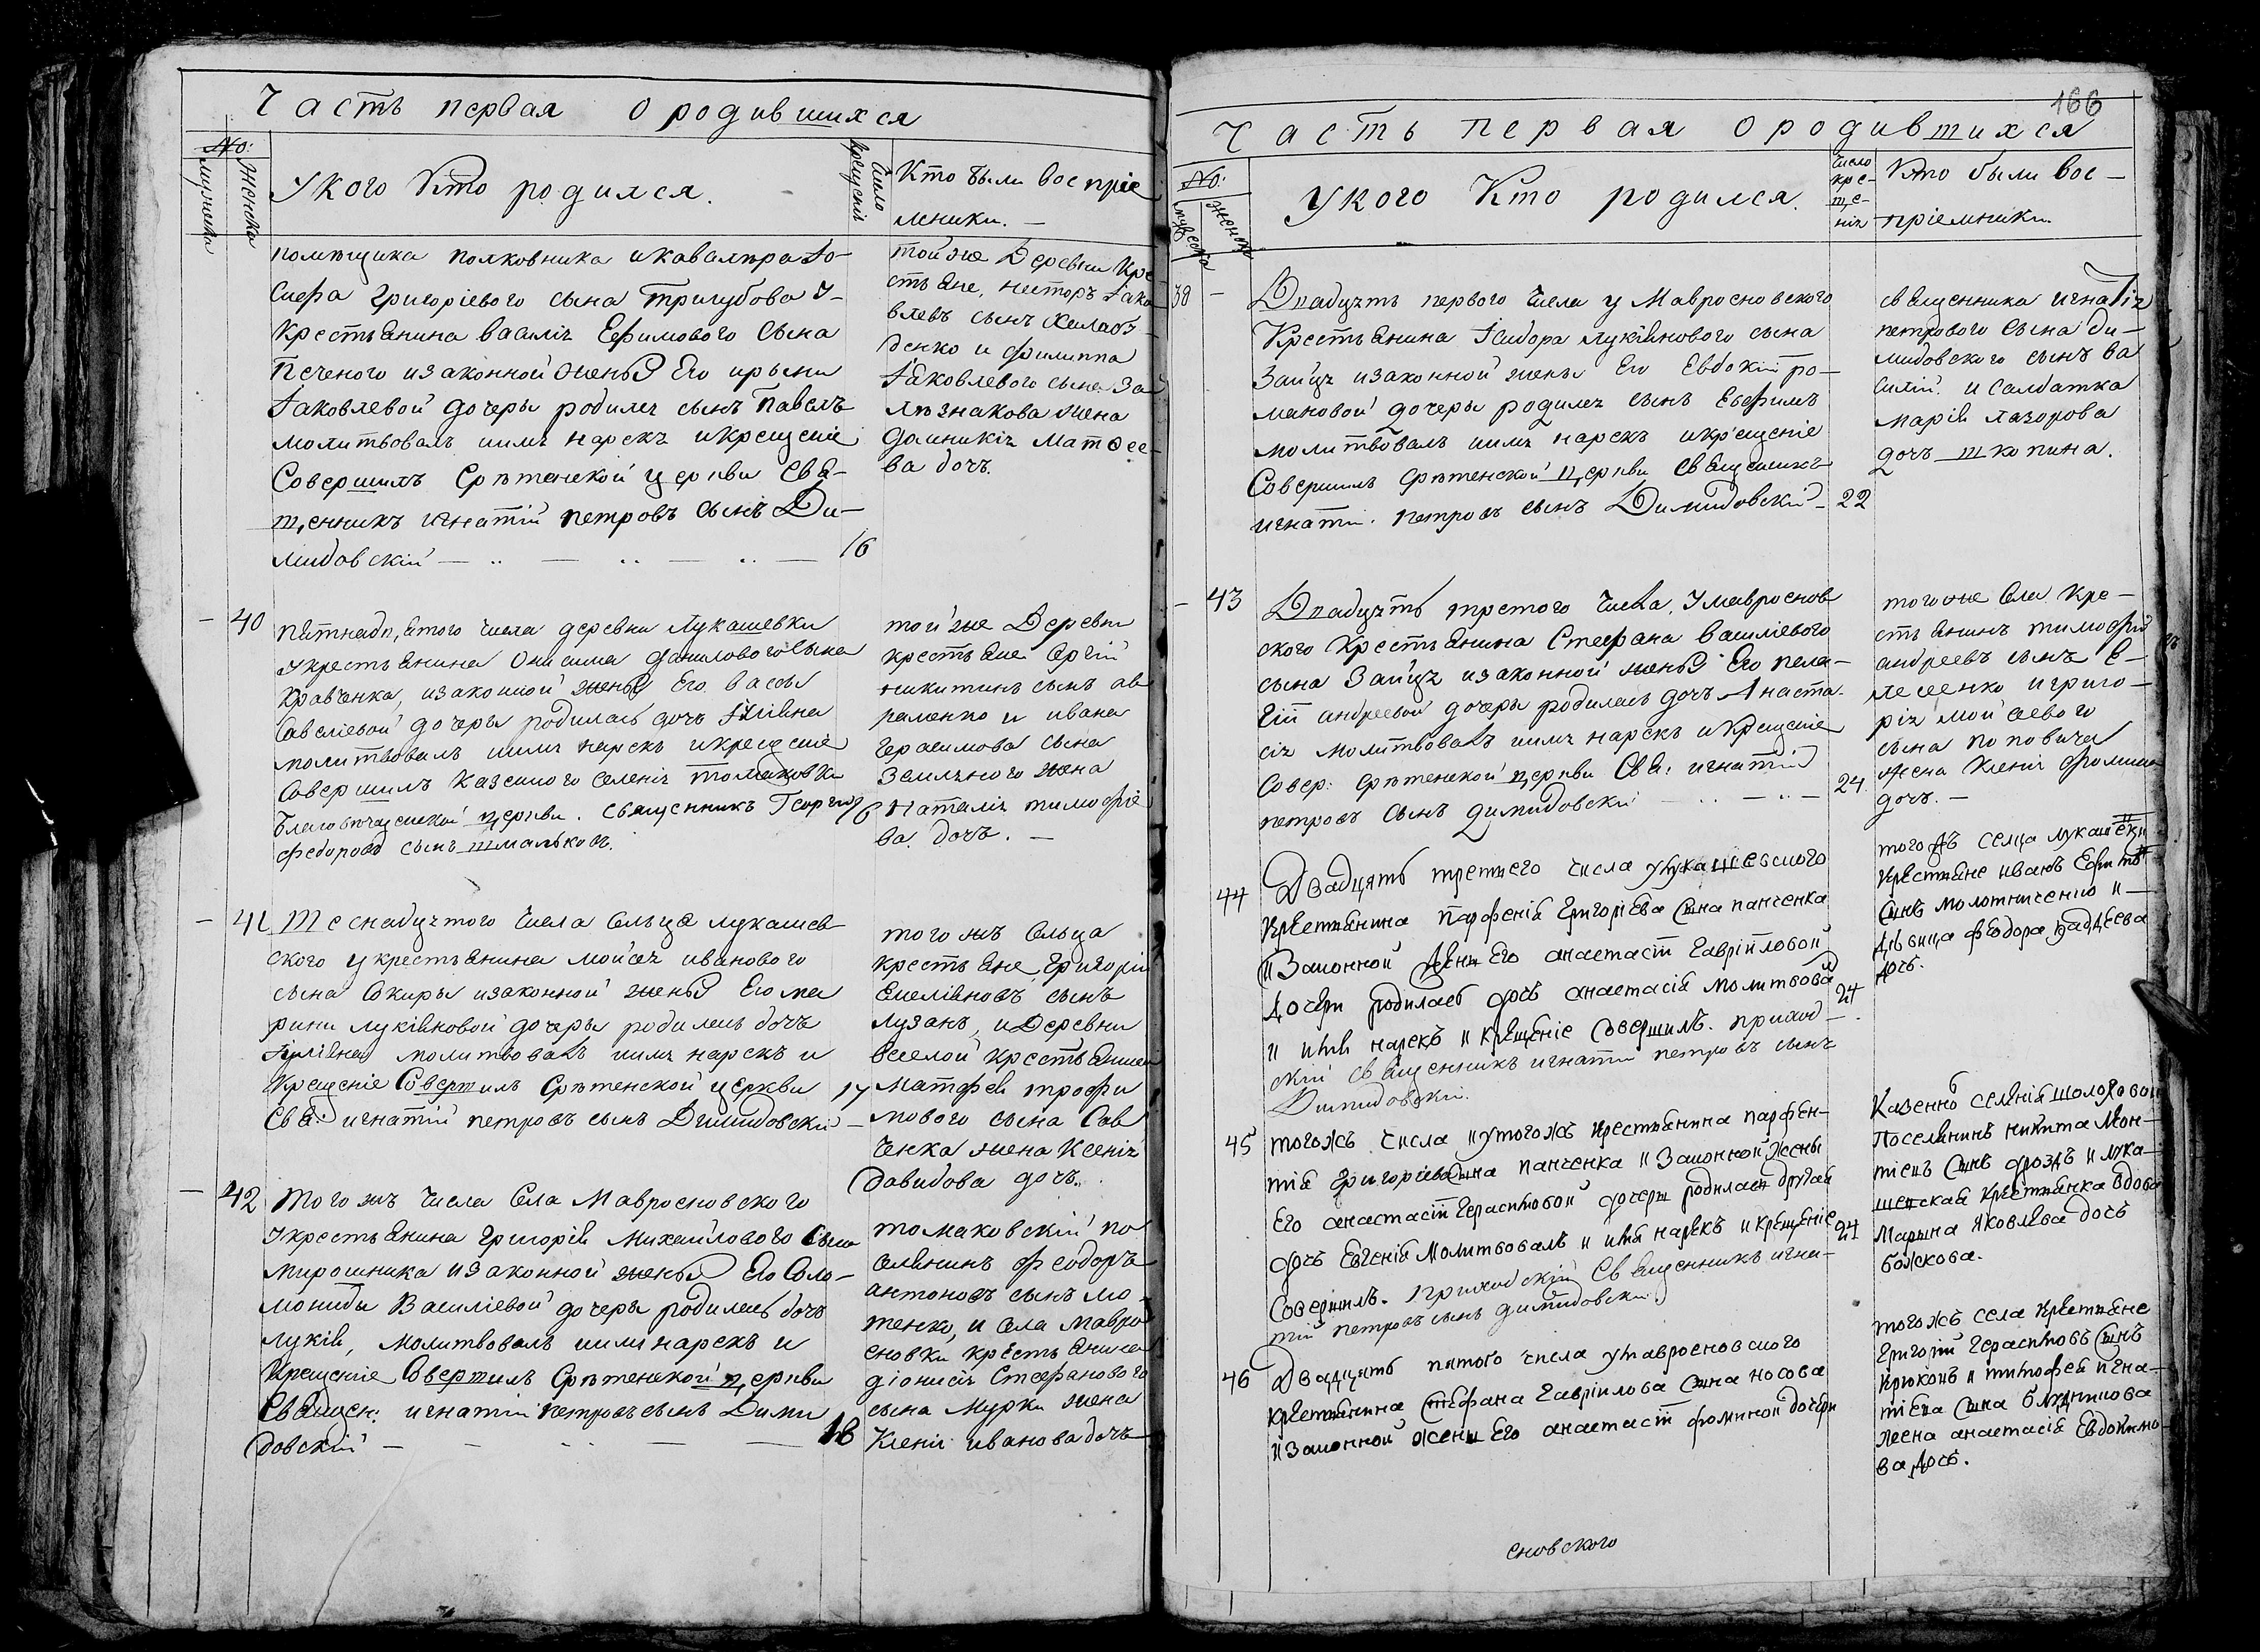 Часть первая о родившихся
№:
мужеска
женска
У кого кто родился.
Число крещенія
Кто были воспріе
мники. —
помѣщика полковника и кавалѣра Іо-
сифа Григоріевого сына Тригубова у
крестьянина Василія Ефимового сына
Печеного и законной жены его Ирыны
Іаковлевой дочеры родился сынъ Павелъ
молитвовалъ имя нарекъ и крещеніе
Совершилъ Срѣтенской церкви Свя-
щенникъ Игнатій Петровъ сынъ Ди-
мидовскій — 16
той же Деревни кре
стьяне, Несторъ Іако
влевъ сынъ
денко и Филиппа
Іаковлевого сына За
лѣзнакова жена
Домникія Матѳее-
ва дочь.
— 40
Пятнадцятого числа деревни Лукашевки
у крестьянина Онисима Даниловогосына
Кравченка, и законной жены его Вассы
Савеліевой дочеры родилась дочь Іуліяна
молитвовалъ имя нарекъ и крещеніе
Совершилъ казенного селенія Томаковки
Благовѣщенской церкви. священникъ Георгій 16
Федоровъ сынъ Шмальковъ.
той же Деревни
крестьяне Сергій
Никитинъ сынъ Ав
раменко и Ивана
Герасимова сына
Землѣного жена
Наталія Тимофіе
ва дочь. —
— 41
Шеснадцятого числа сельца Лукашев-
ского у крестьянина Мойсея Иванового
сына Сокиры и законной жены его Ма
рины Лукіяновой дочеры родилась дочь
Іуліяна молитвовалъ имя нарекъ и
крещеніе Совершилъ Срѣтенской церкви 17
Свя: Игнатій Петровъ сынъ Димидовскій —
того жъ сельца
крестьяне Григорій
Емеліяновъ сынъ
Лузанъ, и Деревни
Веселой крестьянина
Матфея Трофи
мового сына Сав
ченка жена Ксенія
Давидова дочь.
— 42
Того жъ числа села Мавросновского
у крестьянина Григорія Михайлового сына
Мирошника и законной жены его Соло-
мониды Василіевой дочеры родилась дочь
Лукія, молитвовалъ имя нарекъ и
крещеніе Совершилъ Срѣтенской церкви
Священ: Игнатій Петровъ сынъ Дими
довскій — 18
томаковскій по
селянинъ Феодоръ
Антоновъ сынъ Мо
тенко, и села Мавро
сновки крестьянина
Діонисія Стефанового
сына Мурки жена
Ксенія Иванова дочь
166
Часть первая о родившихся
№:
мужеска
женска
У кого кто родился.
Число
кре-
ще-
нія
Кто были вос —
пріемники.
38 —
Двадцять первого числа у Мавросновского
крестьянина Исидора Лукіянового сына
Зайця и законной жены его Евдокіи Ро-
мановой дочеры родился сынъ Евфимъ
молитвовалъ имя нарекъ и крещеніе
Совершилъ Срѣтенской церкви священникъ
Игнатій Петровъ сынъ Димидовскій — 22
священника Игнатія
Петрового сына Ди-
мидовского сынъ Ва
силій и салдатка
Марія Лазорова
дочь Шкопина.
— 43
Двадцять третого числа, у мавроснов
ского крестьянина Стефана Василіевого
сына Зайця и законной жены его Пела-
гіи Андреевой дочеры родилась дочь Анаста-
сія молитвовалъ имя нарекъ и крещеніе
Совер: Срѣтенской церкви Свя: Игнатій 24
Петровъ сынъ Димидовскій
того же села кре-
стьянинъ Тимофій
Андреевъ сынъ Е-
лесенко и Григо-
рія Мойсеевого
сына Поповича
жена Ксенія Фомина
дочь. —
44
Двадцять третьего числа у Лукашевского
крестьянина Парфенія Григоріева сына Панченка
и законной жены его Анастасіи Гавріиловой
дочери родилась дочь Анастасія молитвова 24
и имя нарекъ и крещеніе совершилъ. приход-
скій священникъ Игнатій Петровъ сынъ
Димидовскій.
того жъ селца Лукашевки
крестьяне Иванъ Ефимовъ
сынъ Молотниченко и —
дѣвица Феодора Фаддеева
дочь.
45
того жъ числа и у того жъ крестьянина Парфен-
тія Григоріева сына Панченка и законной жены
его Анастасіи Герасимовой дочери родилась другая
дочь Евгенія молитвовалъ и имя нарекъ и крещеніе 24
совершилъ. приходскій Священникъ Игна-
тій Петровъ сынъ Димидовскій
Казенно селенія Шолоховой
поселянинъ Никита Мон-
тіевъ сынъ Дроздъ и лука-
шевская крестьянка вдова
Марина Яковлева дочь
Божкова.
46
Двадцять пятого числа у мавросновского
крестьянина Стефана Гавріилова сына Носова
и законной жены его Анастасіи Фоминой дочери
сновского
того жъ села крестьяне
Григорій Герасимовъ сынъ
Крюковъ и Тимофея Игна-
тіева сына Блуднинова
жена Анастасія Евдокимо-
ва дочь.